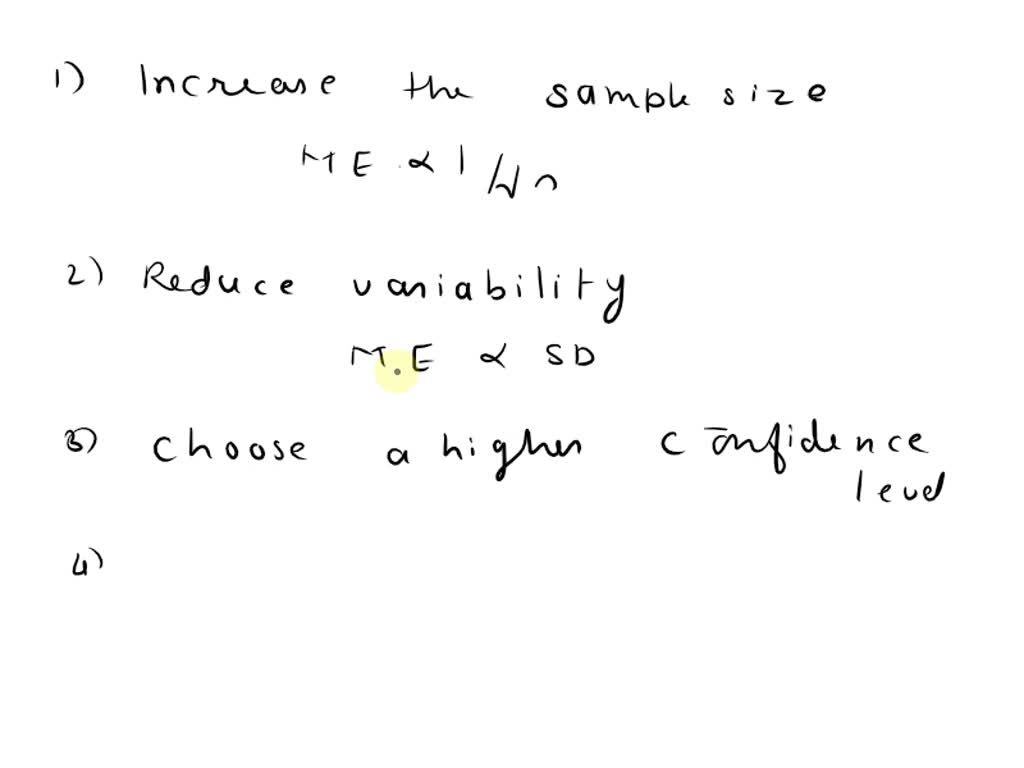 1) Increase the sample size
ME ∝ 1/√n
2) Reduce variability
M.E ∝ SD
3) choose a higher confidence
level
4)